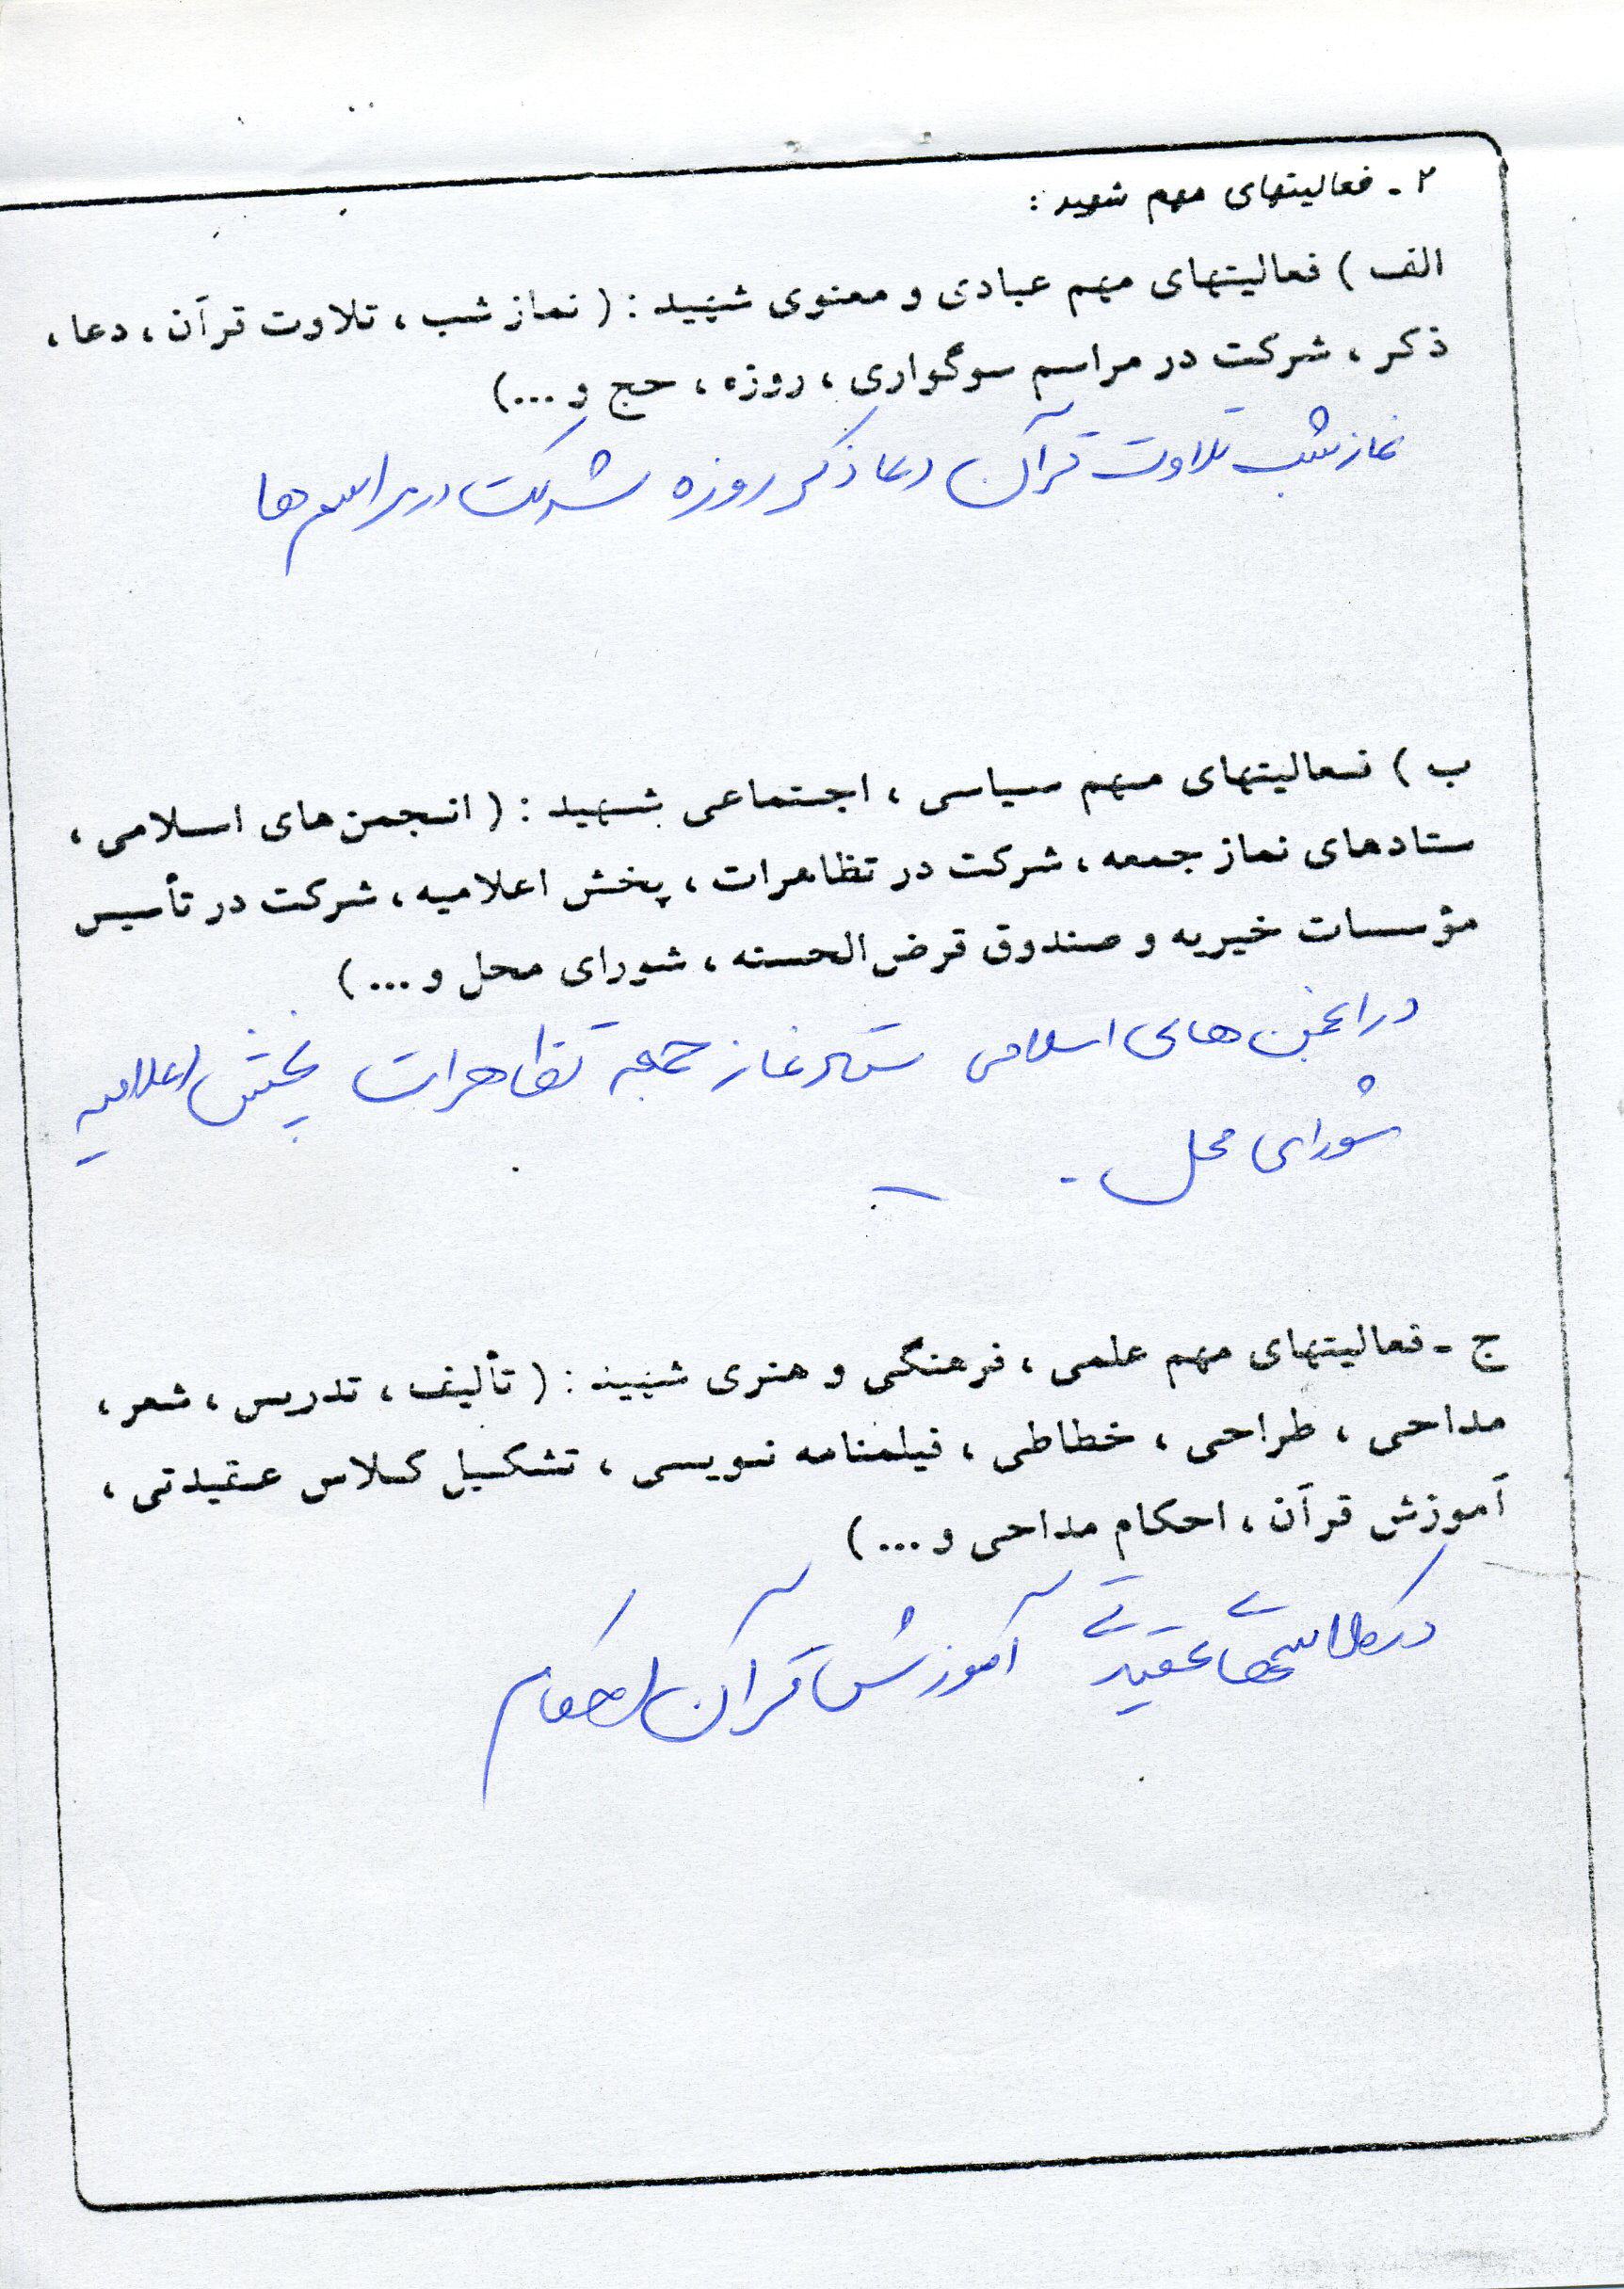 ۲ - فعالیتهای مهم شهید :
الف ) فعالیتهای مهم عبادی و معنوی شهید : ( نماز شب ، تلاوت قرآن ، دعا ،
ذکر ، شرکت در مراسم سوگواری ، روزه ، حج و ... )
نماز شب تلاوت قرآن دعا ذکر روزه شرکت در مراسم ها
ب ) فعالیتهای مهم سیاسی ، اجتماعی شهید : ( انجمن های اسلامی ،
ستادهای نماز جمعه ، شرکت در تظاهرات ، پخش اعلامیه ، شرکت در تأسیس
مؤسسات خیریه و صندوق قرض الحسنه ، شورای محل و ... )
در انجمن های اسلامی ستاد نماز جمعه تظاهرات پخش اعلامیه
شورای محل .
ج - فعالیتهای مهم علمی ، فرهنگی و هنری شهید : ( تألیف ، تدریس ، شعر ،
مداحی ، طراحی ، خطاطی ، فیلمنامه نویسی ، تشکیل کلاس عقیدتی ،
آموزش قرآن ، احکام مداحی و ... )
در کلاسهای عقیدتی آموزش قرآن احکام